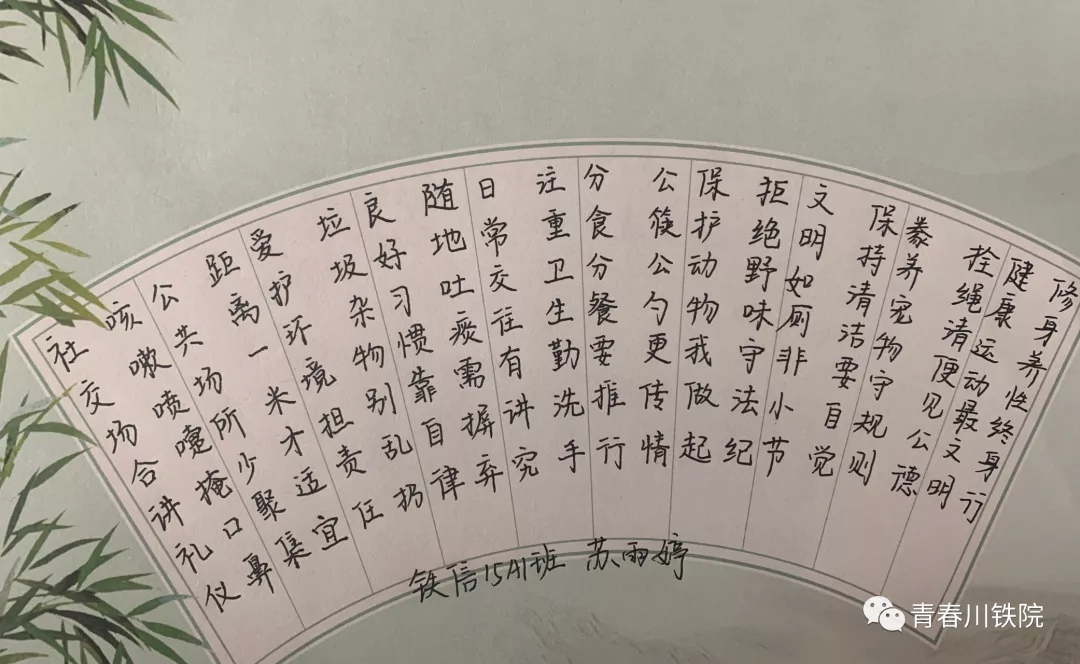 社交场合讲礼仪
咳嗽喷嚏掩口鼻
公共场所少聚集
距离一米才适宜
爱护环境担责任
垃圾杂物别乱扔
良好习惯靠自律
随地吐痰需摒弃
日常交往有讲究
注重卫生勤洗手
分食分餐要推行
公筷公勺更传情
保护动物我做起
拒绝野味守法纪
文明如厕非小节
保持清洁要自觉
豢养宠物守规则
拴绳清便见公德
健康运动最文明
修身养性终身行
铁信15A1班 苏雨婷
青春川铁院